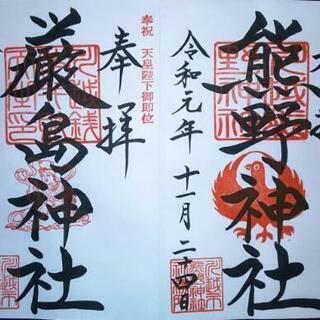 熊野神社
令和元年十一月二十四日
奉祝 天皇陛下御即位
奉拝
厳島神社